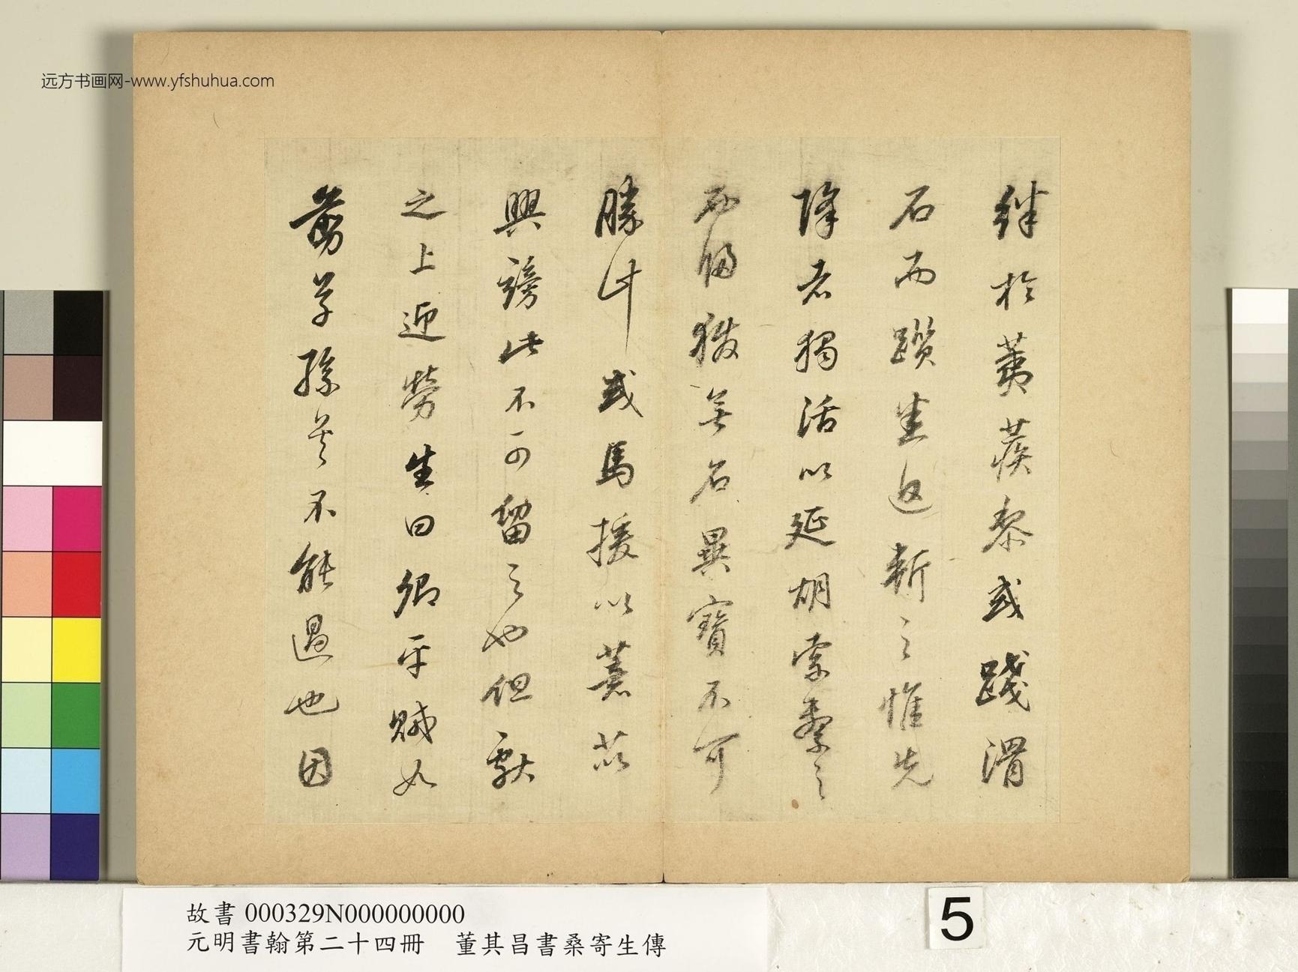 远方书画网-www.yfshuhua.com
絆於蒺藜或踐滑
石而躓生返斬之惟先
降者獨活以延胡索繫之
而歸獲無名異寶不可
勝計或馬援以薏苡
興謗此不可留之也但獻
之上迎勞生曰卿平賊如
剪草孫吳不能過也因
故書 000329N000000000
元明書翰第二十四冊 董其昌書桑寄生傳
5